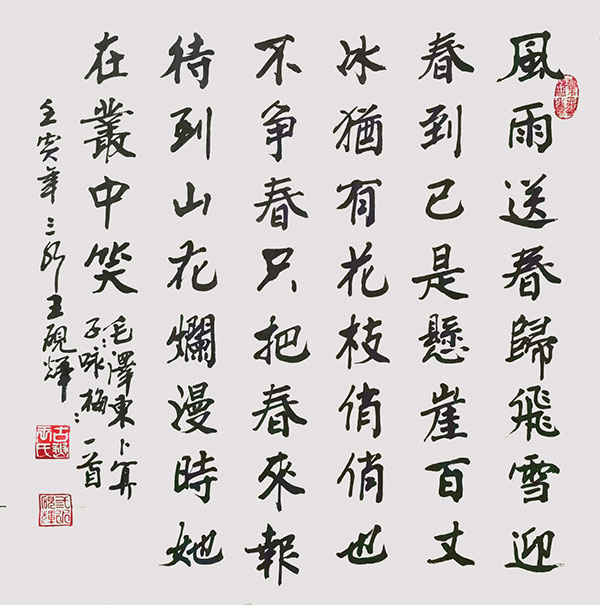 風雨送春歸飛雪迎
春到已是懸崖百丈
冰猶有花枝俏俏也
不争春只把春來報
待到山花爛漫時她
在叢中笑
毛澤東卜算
子:咏梅:一首
壬寅年三 王硯輝